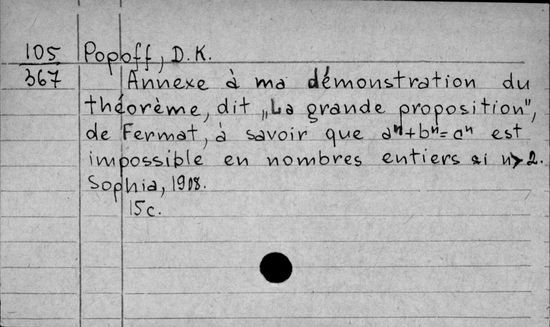 105 Popoff, D.K.
367 Annexe à ma démonstration du
théorème, dit „La grande proposition",
de Fermat, à savoir que aⁿ+bⁿ=cⁿ est
impossible en nombres entiers si n>2.
Sophia, 1908.
15c.